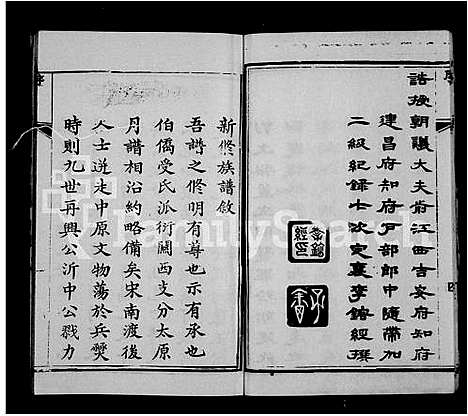 誥授朝議大夫前江西吉安府知府
建昌府知府戶部郎中隨帶加
二級紀錄士次定襄李鎔經撰
李鎔
經印
新修族譜敘
吾譜之修明有尊也示有承也
伯僑受氏派衍關西支分太原
丹譜相沿約略備矣宋南渡後
人士迸走中原文物蕩於兵燹
時則九世再興公沂中公戮力
FamilySearch